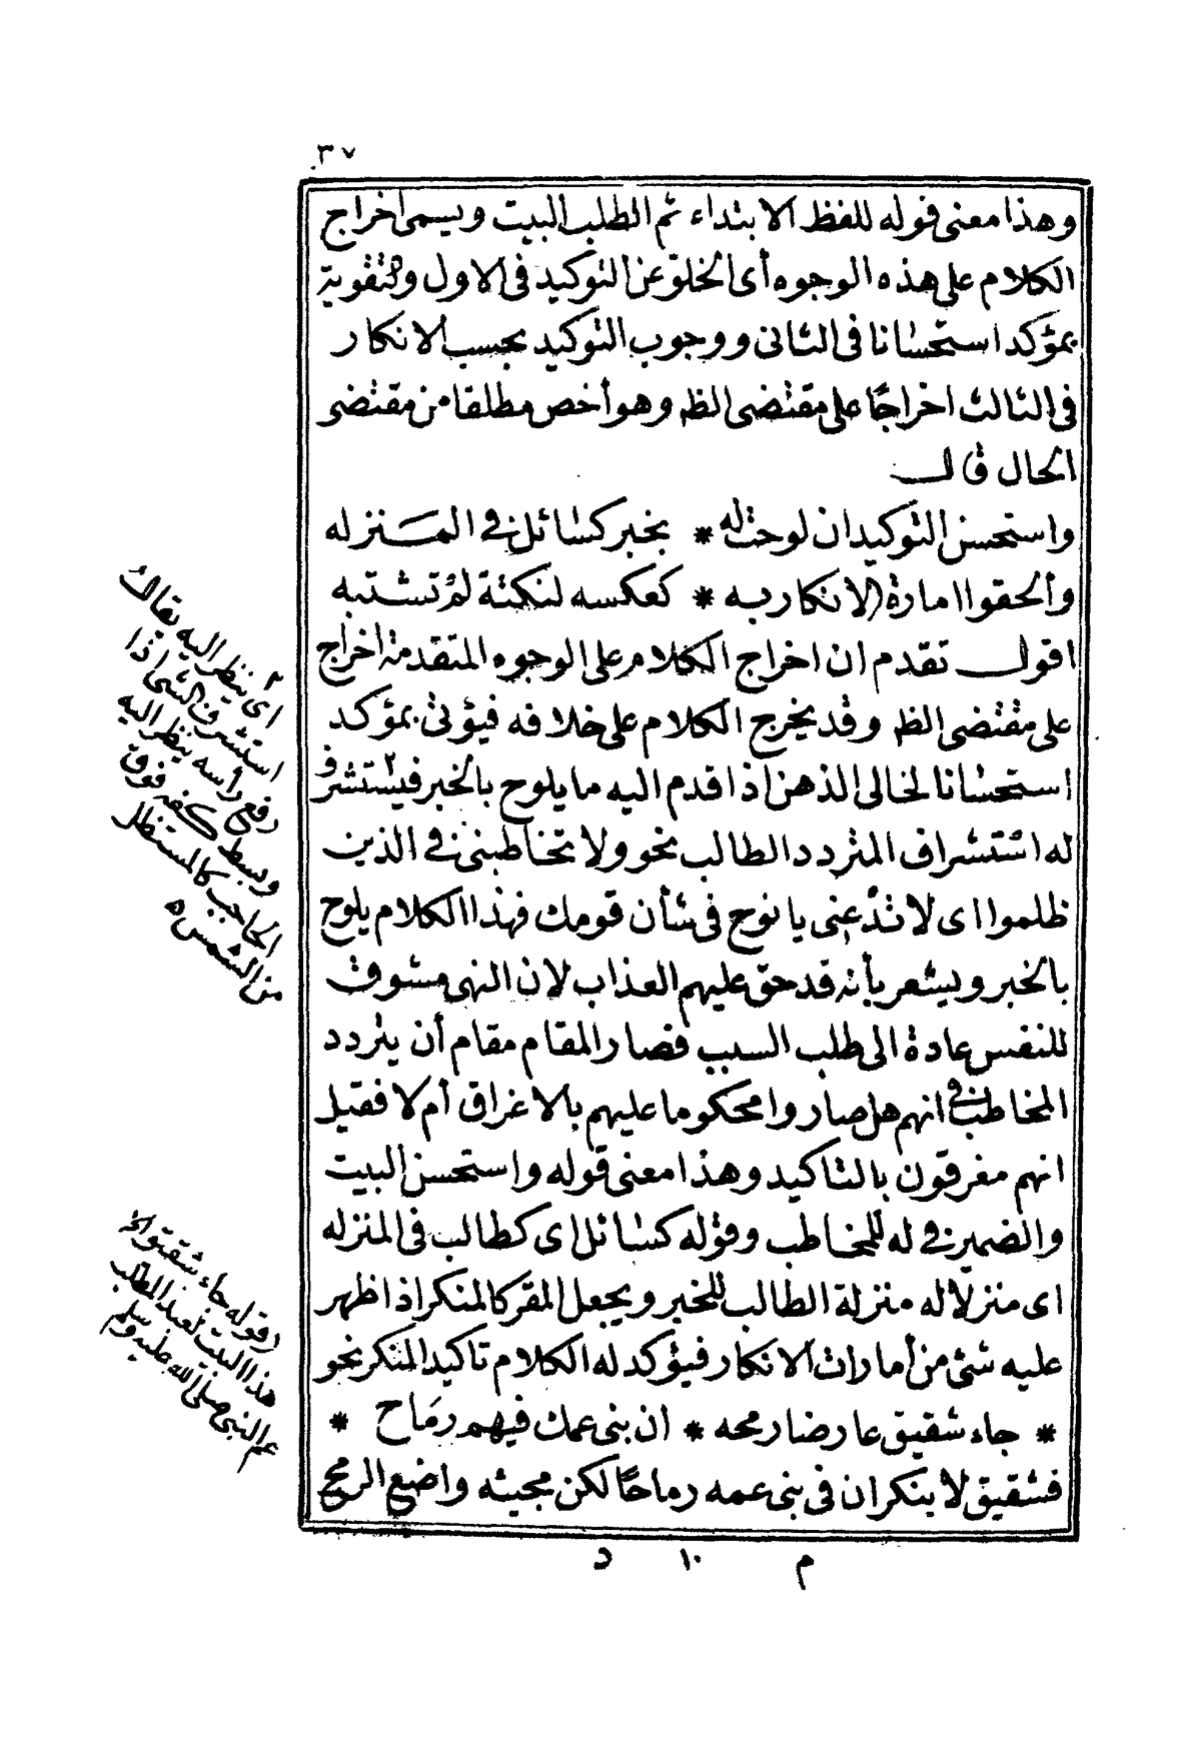 ٣٧
وهذا معنى قوله للفظ الابتداء ثم الطلب البيت ويسمى اخراج
الكلام على هذه الوجوه أى الخلوّ عن التوكيد فى الاول والتقوية
بمؤكد استحسانا فى الثانى ووجوب التوكيد بحسب الانكار
فى الثالث اخراجًا على مقتضى الظ وهو أخص مطلقا من مقتضى
الحال قال
واستحسن التوكيد ان لوحت له * بخبر كسائل فى المنزله
وألحقوا امارة الانكار به * كعكسه لنكتة لم تشتبه
اقول تقدم ان اخراج الكلام على الوجوه المتقدمة اخراج
على مقتضى الظ وقد يخرج الكلام على خلافه فيؤتى بمؤكد
استحسانا لخالى الذهن اذا قدم اليه ما يلوح بالخبر فيستشرف
له استشراف المتردد الطالب نحو ولا تخاطبنى فى الذين
ظلموا اى لا تدعنى يا نوح فى شأن قومك فهذا الكلام يلوح
بالخبر ويشعر بأنه قد حق عليهم العذاب لان النهى مشوق
للنفس عادة الى طلب السبب فصار المقام مقام أن يتردد
المخاطب فى انهم هل صاروا محكوما عليهم بالاغراق أم لا فقيل
انهم مغرقون بالتاكيد وهذا معنى قوله واستحسن البيت
والضمير فى له للمخاطب وقوله كسائل اى كطالب فى المنزله
اى منزلا له منزلة الطالب للخبر ويجعل المقر كالمنكر اذا ظهر
عليه شئ من أمارات الانكار فيؤكد له الكلام تاكيد المنكر نحو
* جاء شقيق عارضا رمحه * ان بنى عمك فيهم رماح *
فشقيق لا ينكر ان فى بنى عمه رماحًا لكن مجيئه واضع الرمح
م ١٠ د
٢
اى ينظر اليه يقال
استشرف الشئ اذا
رفع رأسه ينظر اليه
وبسط كفه فوق
الحاجب كالمستظل
من الشمس ه
(قوله جاء شقيق الخ
هذا البيت لعبد المطلب
عم النبى صلى الله عليه وسلم